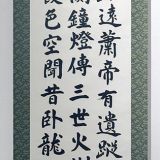 遠蕭帝有遺蹤
鐘燈傳三世火
色空聞昔臥龍